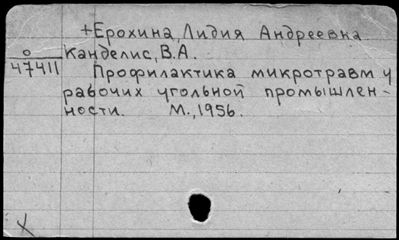 +Ерохина, Лидия Андреевна
О Канделис, В.А.
47411 Профилактика микротравм у
рабочих угольной промышлен-
ности. М., 1956.
X